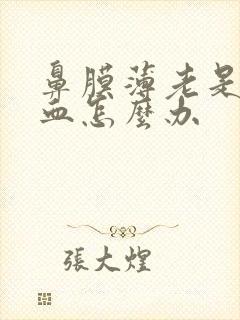 鼻膜薄老是
血怎麼办
張大煌